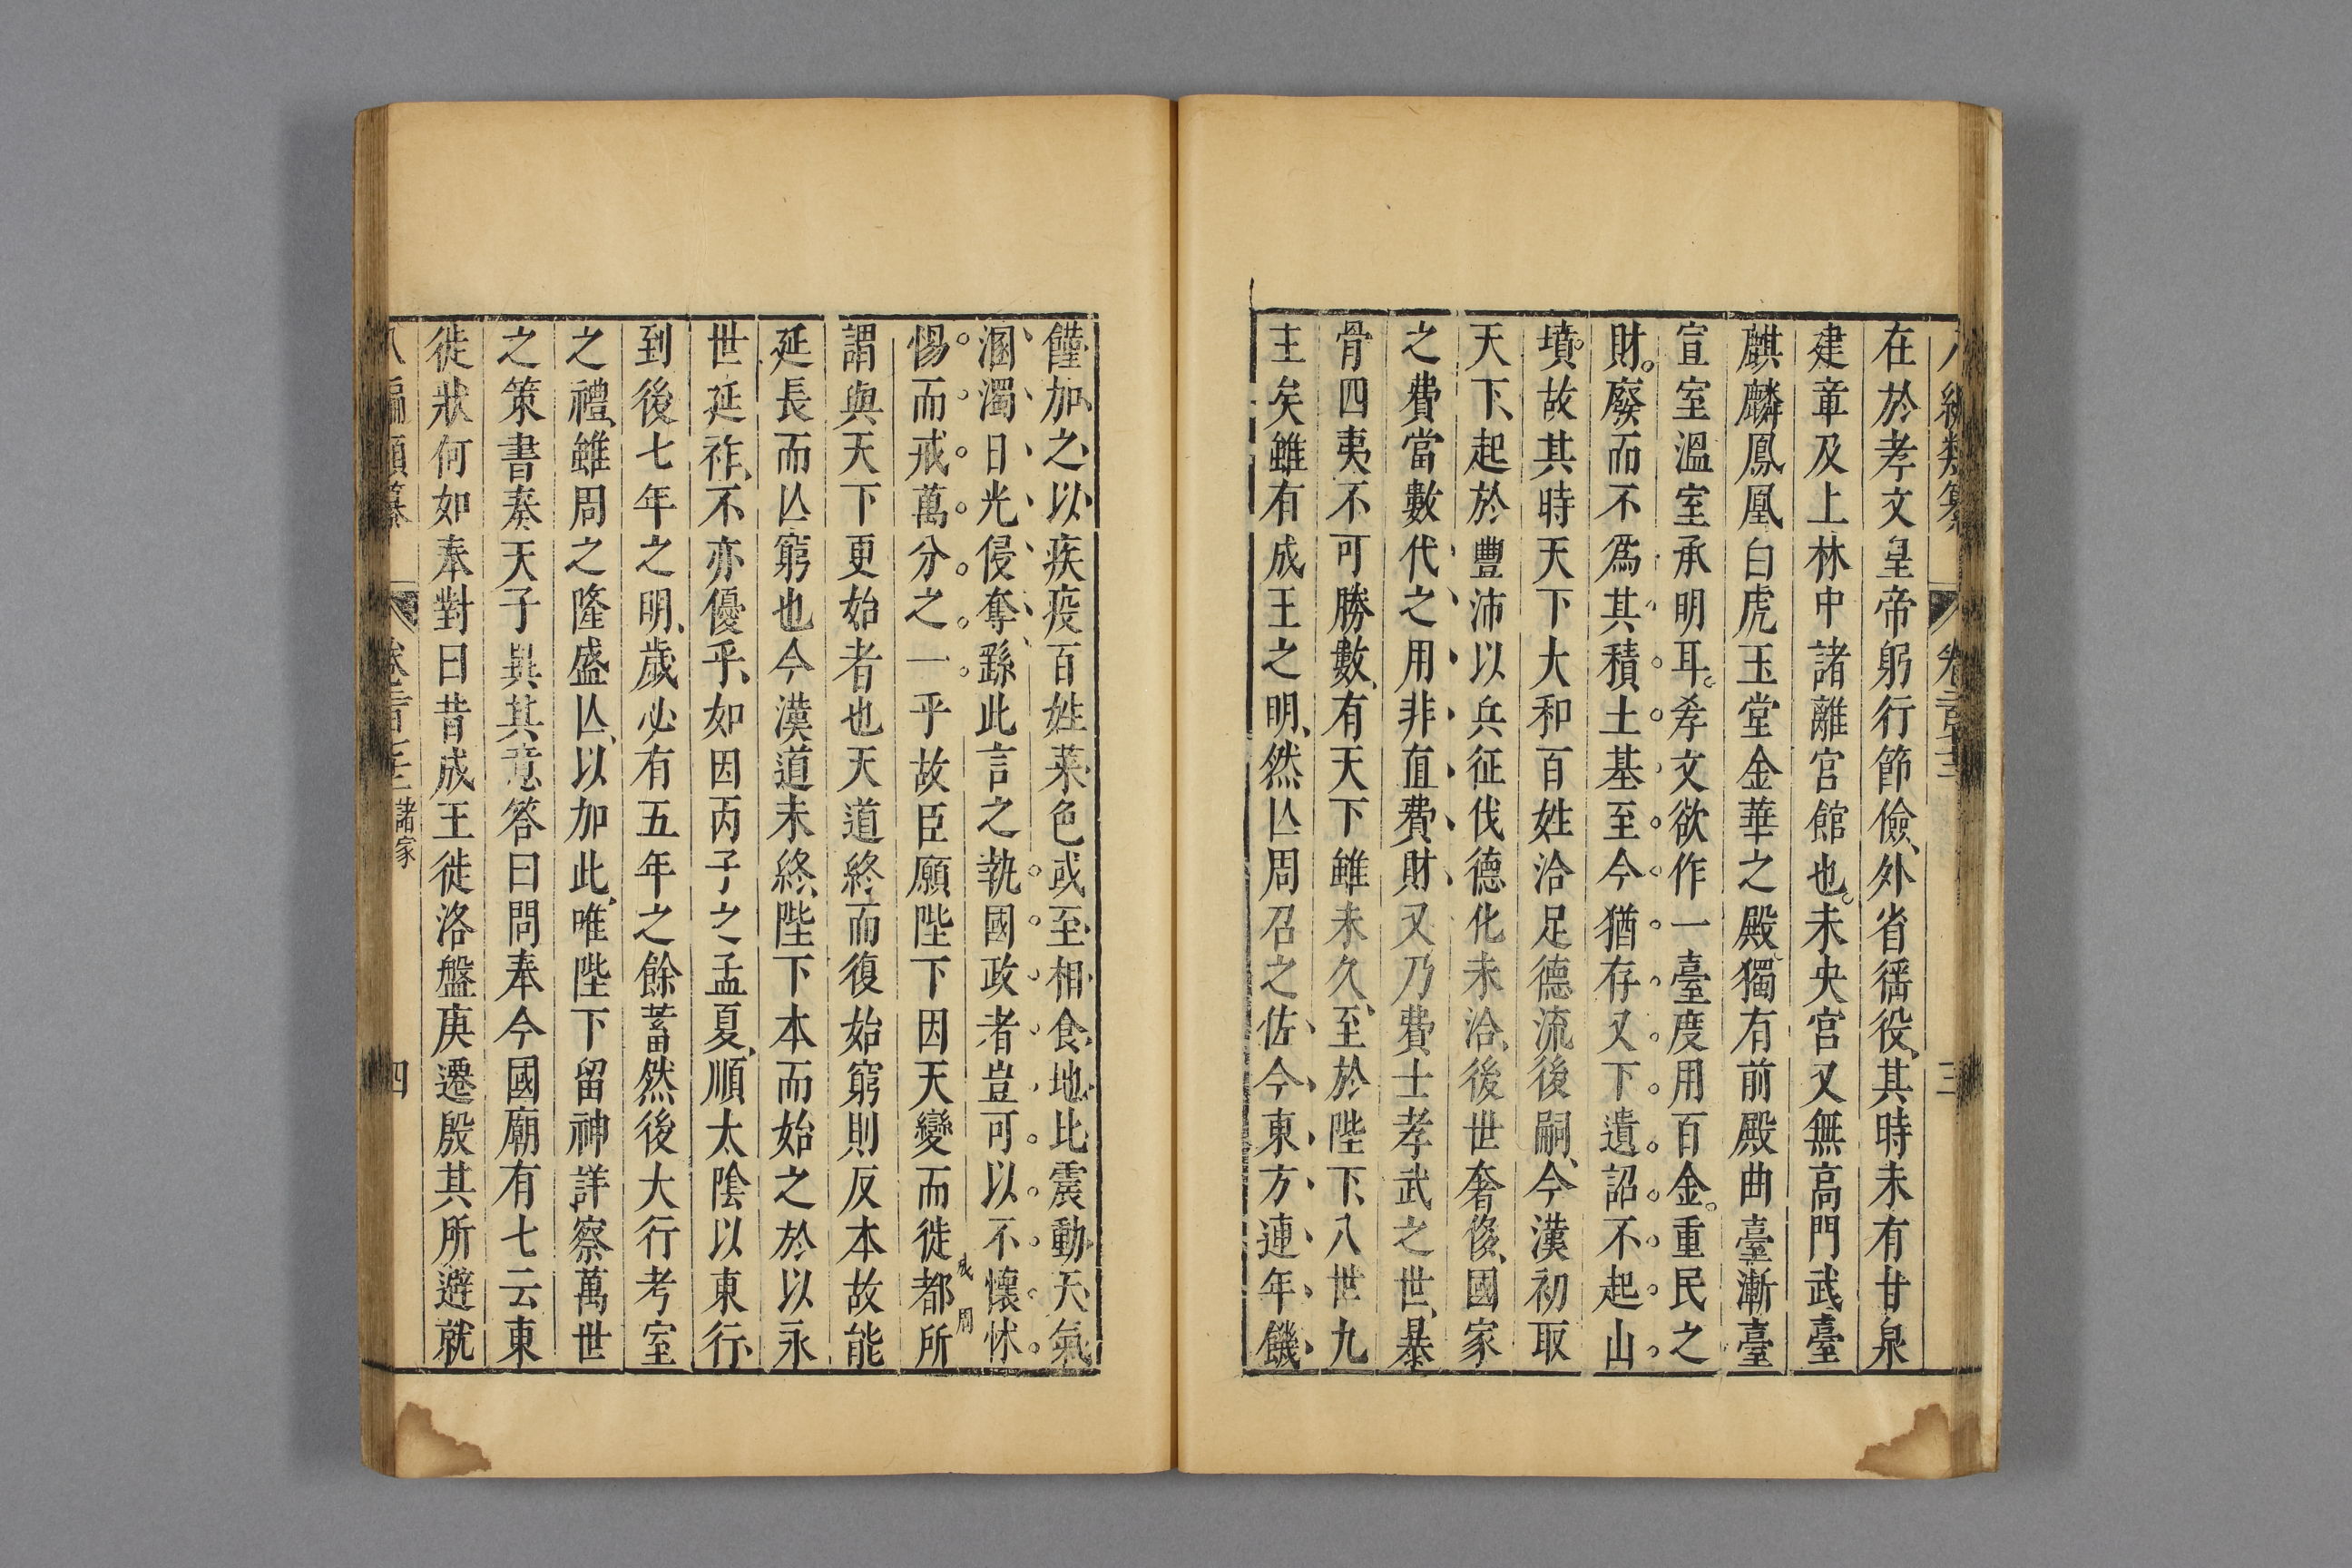 八編類纂 卷 三
在於孝文皇帝躬行節儉外省徭役其時未有甘泉
建章及上林中諸離宮館也未央宮又無高門武臺
麒麟鳳凰白虎玉堂金華之殿獨有前殿曲臺漸臺
宣室溫室承明耳孝文欲作一臺度用百金重民之
財廢而不爲其積土基至今猶存又下遺詔不起山
墳故其時天下大和百姓洽足德流後嗣今漢初取
天下起於豐沛以兵征伐德化未洽後世奢侈國家
之費當數代之用非直費財又乃費士孝武之世暴
骨四夷不可勝數有天下雖未久至於陛下八世九
主矣雖有成王之明然亾周召之佐今東方連年饑
饉加之以疾疫百姓菜色或至相食地比震動天氣
溷濁日光侵奪繇此言之執國政者豈可以不懷怵
惕而戒萬分之一乎故臣願陛下因天變而徙都所
成周
謂與天下更始者也天道終而復始窮則反本故能
延長而亾窮也今漢道未終陛下本而始之於以永
世延祚不亦優乎如因丙子之孟夏順太陰以東行
到後七年之明歲必有五年之餘蓄然後大行考室
之禮雖周之隆盛亾以加此唯陛下留神詳察萬世
之策書奏天子異其意答曰問奉今國廟有七云東
徙狀何如奉對曰昔成王徙洛盤庚遷殷其所避就
八編類纂 卷 諸家 四